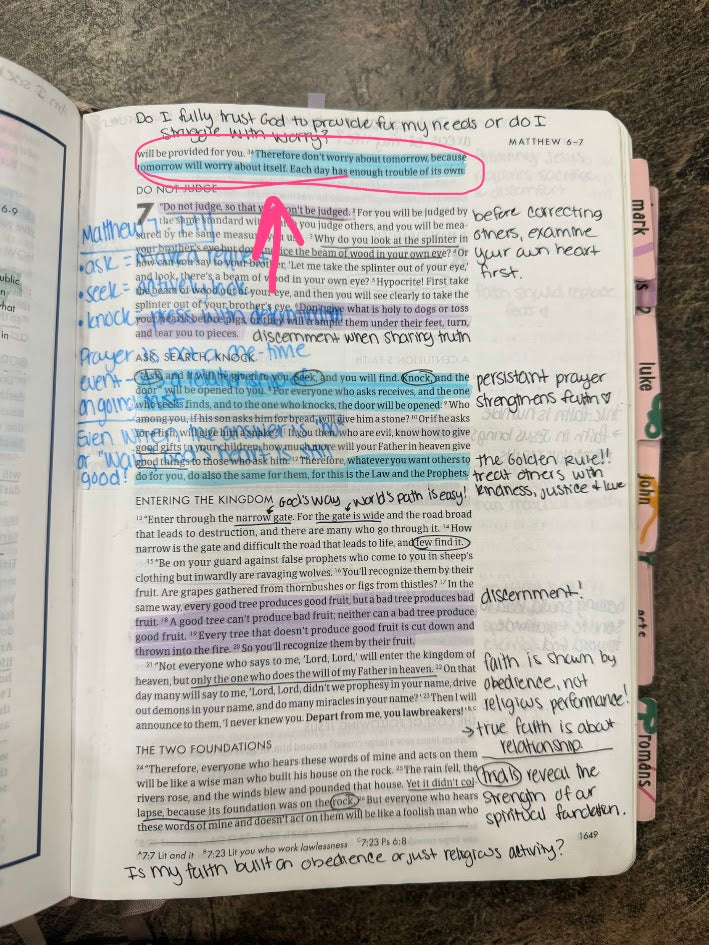 Do I fully trust God to provide for my needs or do I
struggle with worry?
MATTHEW 6–7
will be provided for you. 34 Therefore don't worry about tomorrow, because
tomorrow will worry about itself. Each day has enough trouble of its own.
DO NOT JUDGE
7 "Do not judge, so that you won't be judged. 2 For you will be judged by
the standard with you judge others, and you will be mea-
sured by the same measure you use. 3 Why do you look at the splinter in
your brother's eye but don't notice the beam of wood in your own eye? 4 Or
how can you say to your brother, 'Let me take the splinter out of your eye,'
and look, there's a beam of wood in your own eye? 5 Hypocrite! First take
the beam of wood out of your eye, and then you will see clearly to take the
splinter out of your brother's eye. 6 Don't give what is holy to dogs or toss
your pearls before pigs, or they will trample them under their feet, turn,
and tear you to pieces.
discernment when sharing truth
before correcting
others, examine
your own heart
first.
Matthew 7
• ask =
• seek =
• knock =
Prayer is one-time
event –
ongoing
Even when answer is
or "wait"
good!
ASK, SEARCH, KNOCK
7 "Ask, and it will be given to you. Seek, and you will find. Knock, and the
door will be opened to you. 8 For everyone who asks receives, and the one
who seeks finds, and to the one who knocks, the door will be opened. 9 Who
among you, if his son asks him for bread, will give him a stone? 10 Or if he asks
for a fish, will give him a snake? 11 If you then, who are evil, know how to give
good gifts to your children, how much more will your Father in heaven give
good things to those who ask him. 12 Therefore, whatever you want others to
do for you, do also the same for them, for this is the Law and the Prophets.
persistant prayer
strengthens faith ♡
the Golden Rule!!
treat others with
kindness, justice + love
ENTERING THE KINGDOM
God's way
World's path is easy!
13 "Enter through the narrow gate. For the gate is wide and the road broad
that leads to destruction, and there are many who go through it. 14 How
narrow is the gate and difficult the road that leads to life, and few find it.
15 "Be on your guard against false prophets who come to you in sheep's
clothing but inwardly are ravaging wolves. 16 You'll recognize them by their
fruit. Are grapes gathered from thornbushes or figs from thistles? 17 In the
same way, every good tree produces good fruit, but a bad tree produces bad
fruit. 18 A good tree can't produce bad fruit; neither can a bad tree produce
good fruit. 19 Every tree that doesn't produce good fruit is cut down and
thrown into the fire. 20 So you'll recognize them by their fruit.
discernment!
21 "Not everyone who says to me, 'Lord, Lord,' will enter the kingdom of
heaven, but only the one who does the will of my Father in heaven. 22 On that
day many will say to me, 'Lord, Lord, didn't we prophesy in your name, drive
out demons in your name, and do many miracles in your name?' 23 Then I will
announce to them, 'I never knew you. Depart from me, you lawbreakers!'
faith is shown by
obedience, not
religious performance!
→ true faith is about
relationship
THE TWO FOUNDATIONS
24 "Therefore, everyone who hears these words of mine and acts on them
will be like a wise man who built his house on the rock. 25 The rain fell, the
rivers rose, and the winds blew and pounded that house. Yet it didn't col-
lapse, because its foundation was on the rock. 26 But everyone who hears
these words of mine and doesn't act on them will be like a foolish man who
trials reveal the
strength of our
spiritual foundation.
A 7:7 Lit and it B 7:23 Lit you who work lawlessness C 7:23 Ps 6:8
1649
Is my faith built on obedience or just religious activity?
mark
luke
john
acts
romans
6–9
public
that
in